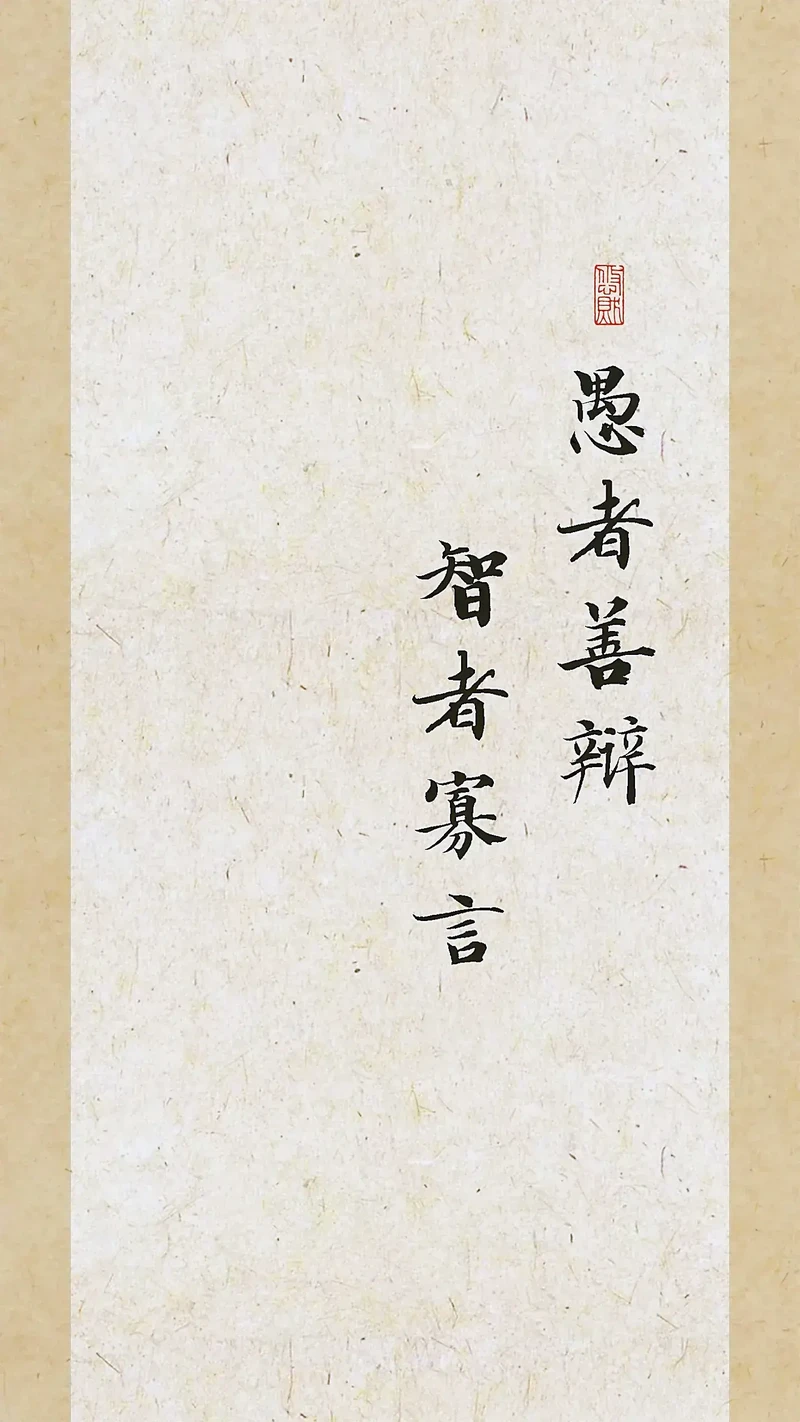 愚者善辩
智者寡言